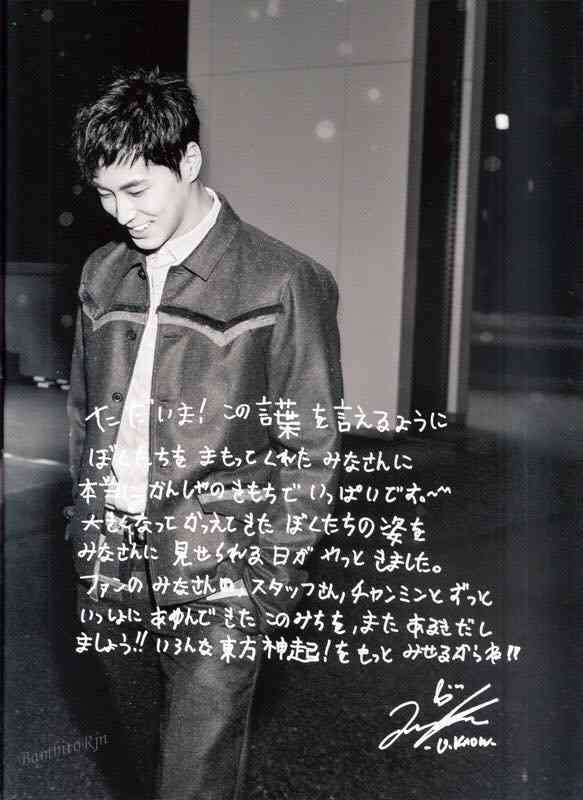 ただいま! この言葉を言えるように
ぼくたちを まもってくれた みなさんに
本当にかんしゃのきもちで いっぱいです。〜
大きくなって かっえてきた ぼくたちの姿を
みなさんに 見せられる日が やっと きました。
ファンの みなさん、スタッフさん,チャンミンと ずっと
いっしょに あゆんできた このみちを,また あるきだし
ましょう!! いろんな 東方神起!を もっと みせるからね!!
- U.KNOW -
Bambito Rjn